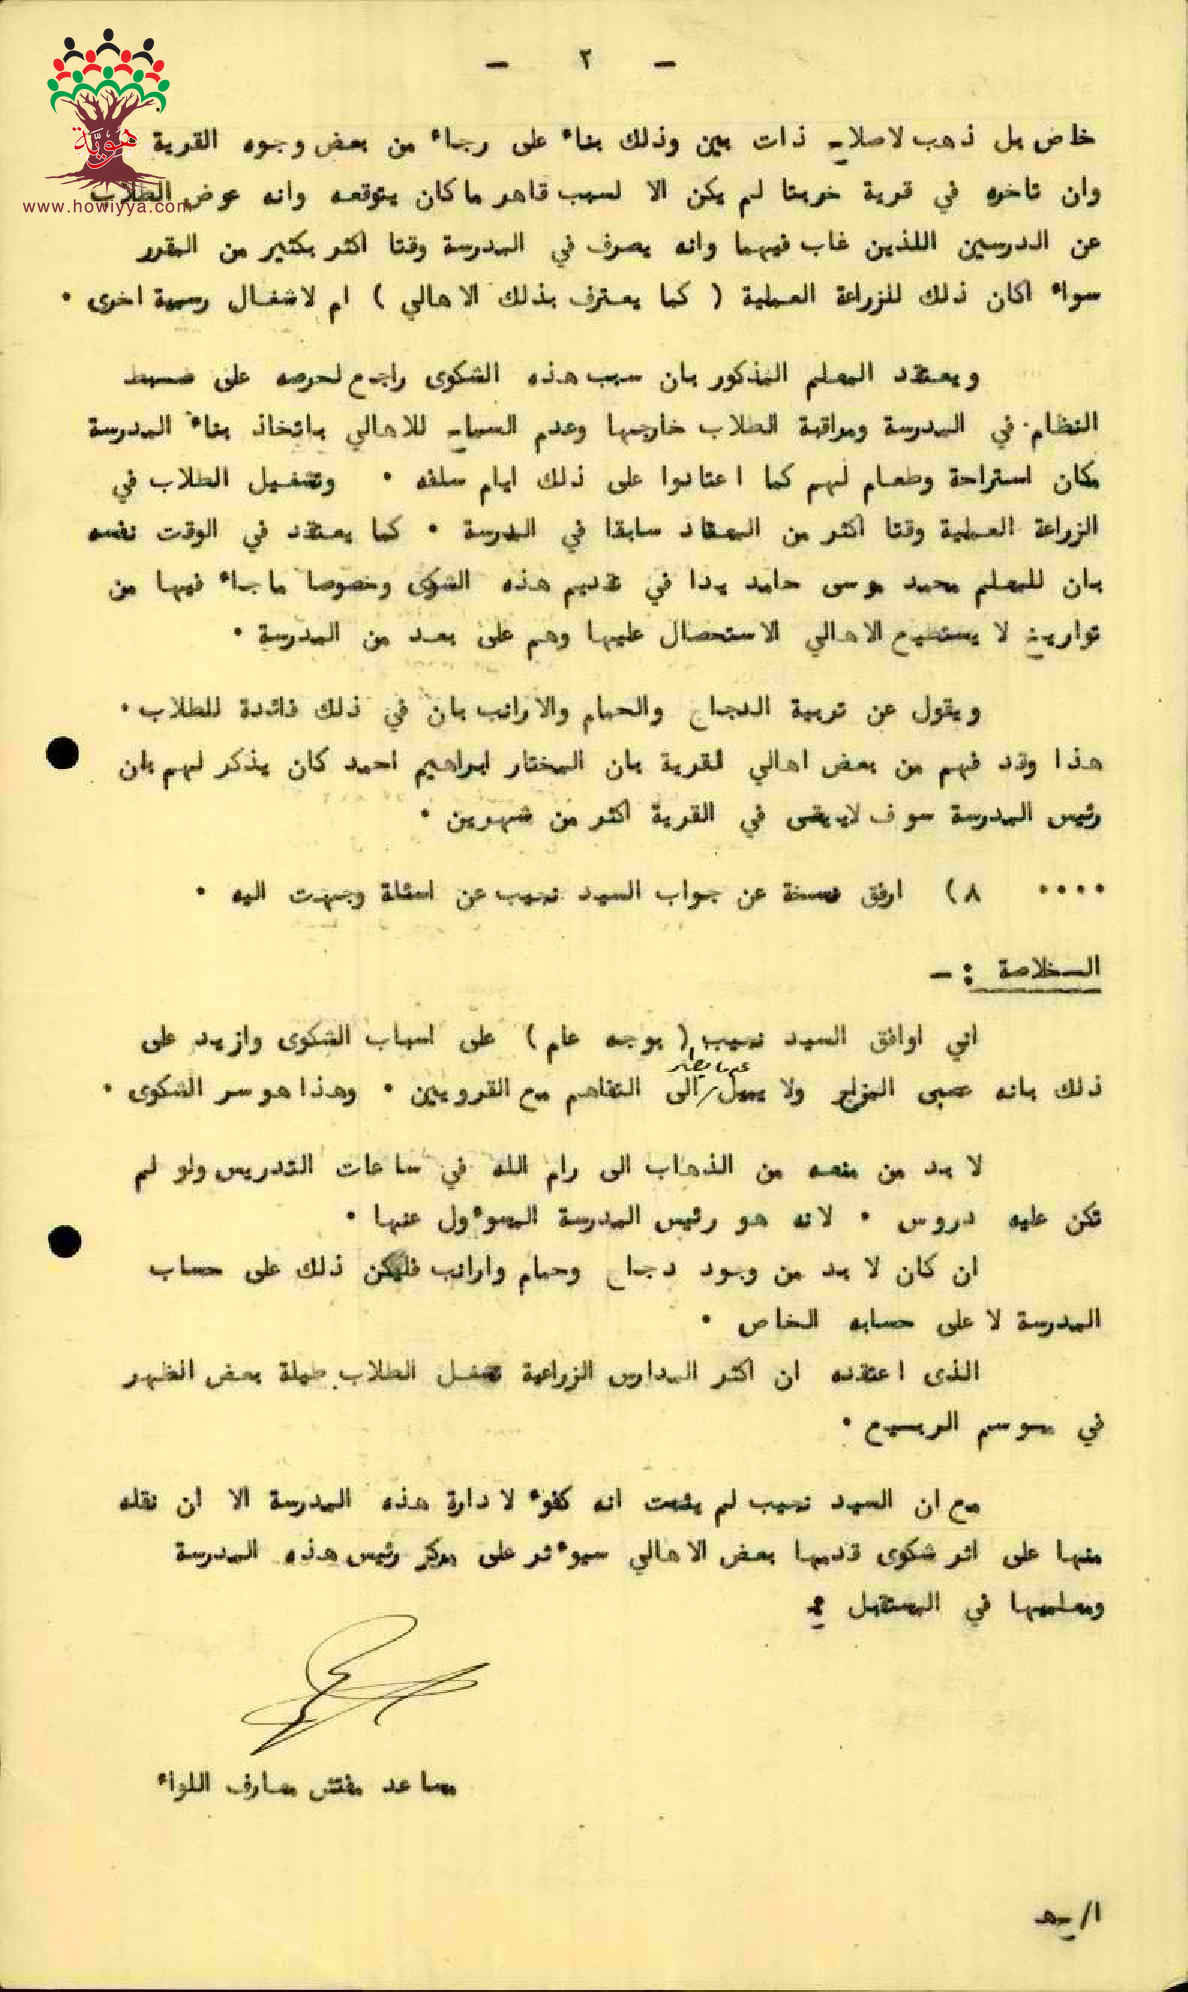 - ٢ -
هويّة
www.howiyya.com
خاص بل ذهب لاصلاح ذات بين وذلك بناء على رجاء من بعض وجوه القرية
وان تاخره في قرية خربتا لم يكن الا لسبب قاهر ماكان يتوقعه وانه عوض الطلاب
عن الدرسين اللذين غاب فيهما وانه يصرف في المدرسة وقتا اكثر بكثير من المقرر
سواء اكان ذلك للزراعة العملية ( كما يعترف بذلك الاهالي ) ام لاشغال رسمية اخرى ٠
ويعتقد المعلم المذكور بان سبب هذه الشكوى راجع لحرصه على ضبط
النظام في المدرسة ومراقبة الطلاب خارجها وعدم السماح للاهالي باتخاذ بناء المدرسة
مكان استراحة وطعام لهم كما اعتادوا على ذلك ايام سلفه ٠ وتشغيل الطلاب في
الزراعة العملية وقتا اكثر من المعتاد سابقا في المدرسة ٠ كما يعتقد في الوقت نفسه
بان للمعلم محمد موسى حامد يدا في تقديم هذه الشكوى وخصوصا ماجاء فيها من
تواريخ لا يستطيع الاهالي الاستحصال عليها وهم على بعد من المدرسة ٠
ويقول عن تربية الدجاج والحمام والارانب بان في ذلك فائدة للطلاب ٠
هذا وقد فهم من بعض اهالي القرية بان المختار ابراهيم احمد كان يذكر لهم بان
رئيس المدرسة سوف لايبقى في القرية اكثر من شهرين ٠
٠٠٠٠ ٨) ارفق نسخة عن جواب السيد نجيب عن اسئلة وجهت اليه ٠
الــخلاصة :-
اني اوافق السيد نجيب ( بوجه عام ) على اسباب الشكوى وازيد على
ذلك بانه عصبي المزاج ولا يميل/الى التفاهم مع القرويين ٠ وهذا هو سر الشكوى ٠
لا بد من منعه من الذهاب الى رام الله في ساعات التدريس ولو لم
تكن عليه دروس ٠ لانه هو رئيس المدرسة المسوءول عنها ٠
ان كان لا بد من وجود دجاج وحمام وارانب فليكن ذلك على حساب
المدرسة لا على حسابه الخاص ٠
الذى اعتقده ان اكثر المدارس الزراعية تشغل الطلاب طيلة بعض الظهر
في موسم الربيع ٠
مع ان السيد نجيب لم يثبت انه كفوء لادارة هذه المدرسة الا ان نقله
منها على اثر شكوى قدمها بعض الاهالي سيوءثر على مركز رئيس هذه المدرسة
ومعلميها في المستقبل
مساعد مفتش معارف اللواء